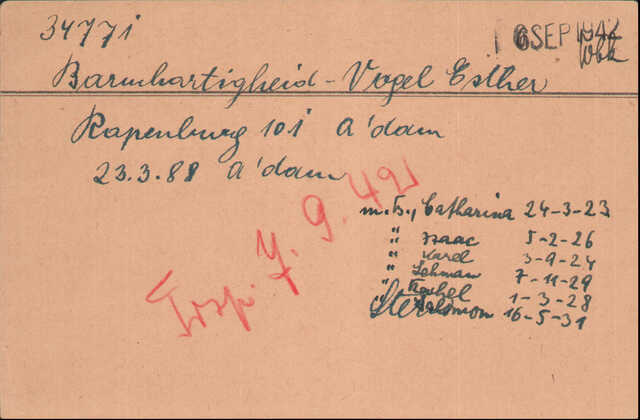 34771
6 SEP 1942
Barmhartigheid - Vogel Esther
Rapenburg 101 A'dam
23.3.88 A'dam
Trsp. 7.9.42
m. B., Catharina 24-3-23
" Isaac 5-2-26
" Karel 3-9-24
" Lehman 7-11-29
" Rachel 1-3-28
" Salomon 16-5-31